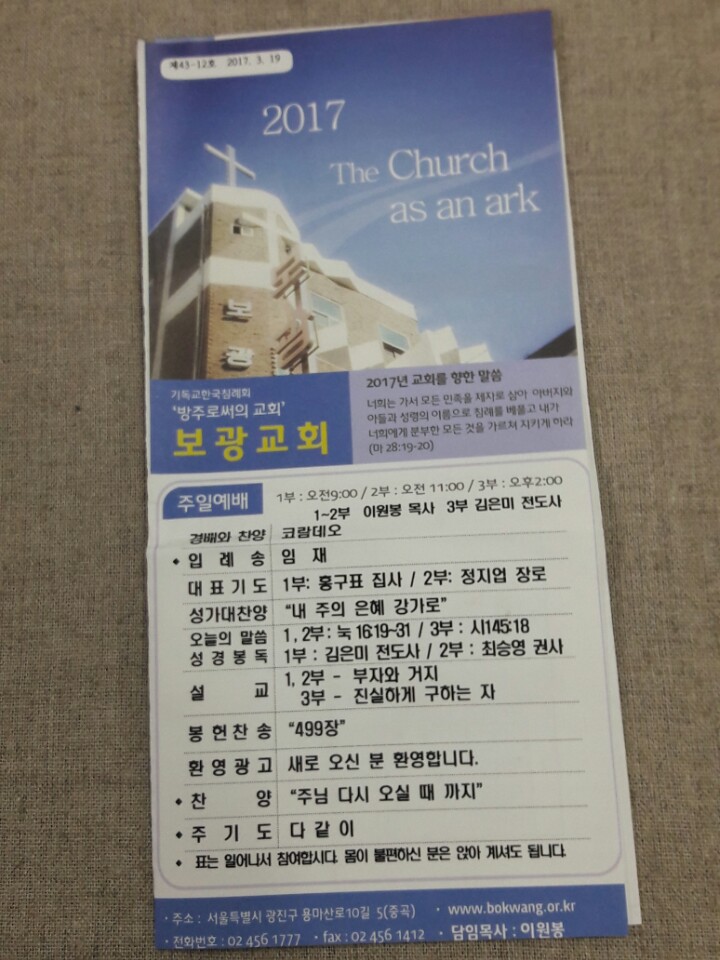 제43-12호 2017. 3. 19
2017
The Church
as an ark
보광
기독교한국침례회
'방주로써의 교회'
보광교회
2017년 교회를 향한 말씀
너희는 가서 모든 민족을 제자로 삼아 아버지와
아들과 성령의 이름으로 침례를 베풀고 내가
너희에게 분부한 모든 것을 가르쳐 지키게 하라
(마 28:19-20)
주일예배 1부 : 오전9:00 / 2부 : 오전 11:00 / 3부 : 오후2:00
1~2부 이원봉 목사 3부 김은미 전도사
경배와 찬양 코람데오
◆ 입 례 송 임 재
대 표 기 도 1부: 홍구표 집사 / 2부: 정지업 장로
성가대찬양 "내 주의 은혜 강가로"
오늘의 말씀 1, 2부: 눅 16:19-31 / 3부 : 시145:18
성 경 봉 독 1부 : 김은미 전도사 / 2부 : 최승영 권사
설 교 1, 2부 - 부자와 거지
3부 - 진실하게 구하는 자
봉 헌 찬 송 "499장"
환 영 광 고 새로 오신 분 환영합니다.
◆ 찬 양 "주님 다시 오실 때 까지"
◆ 주 기 도 다 같 이
◆ 표는 일어나서 참여합시다. 몸이 불편하신 분은 앉아 계셔도 됩니다.
· 주소 : 서울특별시 광진구 용마산로10길 5(중곡) · www.bokwang.or.kr
· 전화번호 : 02 456 1777 · fax : 02 456 1412 · 담임목사 : 이원봉